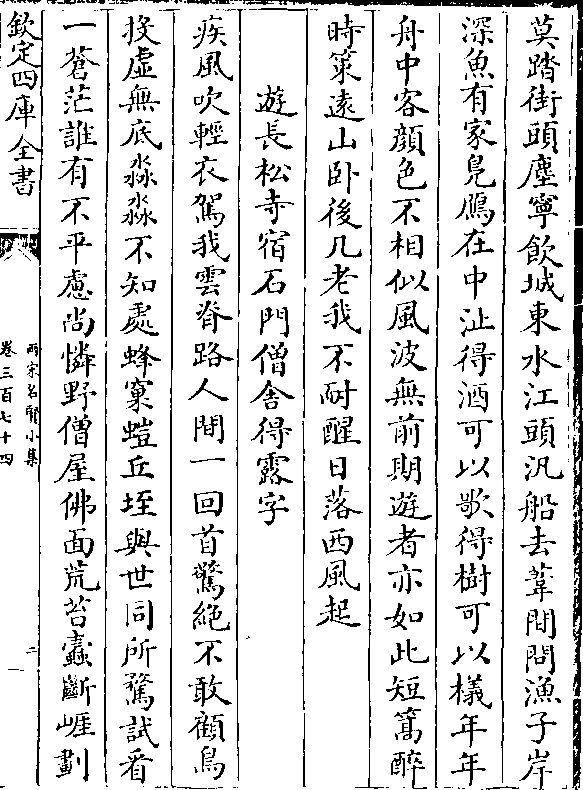 莫踏街頭塵寧飲城東水江頭汎船去葦間問漁子岸
深魚有家鳧鴈在中沚得酒可以歌得樹可以檥年年
舟中客顔色不相似風波無前期遊者亦如此短篙醉
時策遠山卧後几老我不耐醒日落西風起
遊長松寺宿石門僧舍得露字
疾風吹輕衣駕我雲脊路人間一回首驚絶不敢顧鳥
投虚無底淼淼不知處蜂窠螘丘垤與世同所騖試看
一蒼茫誰有不平慮尚憐野僧屋佛面荒苔蠹斷崕劃
欽定四庫全書
兩宋名賢小集
卷三百七十四
二